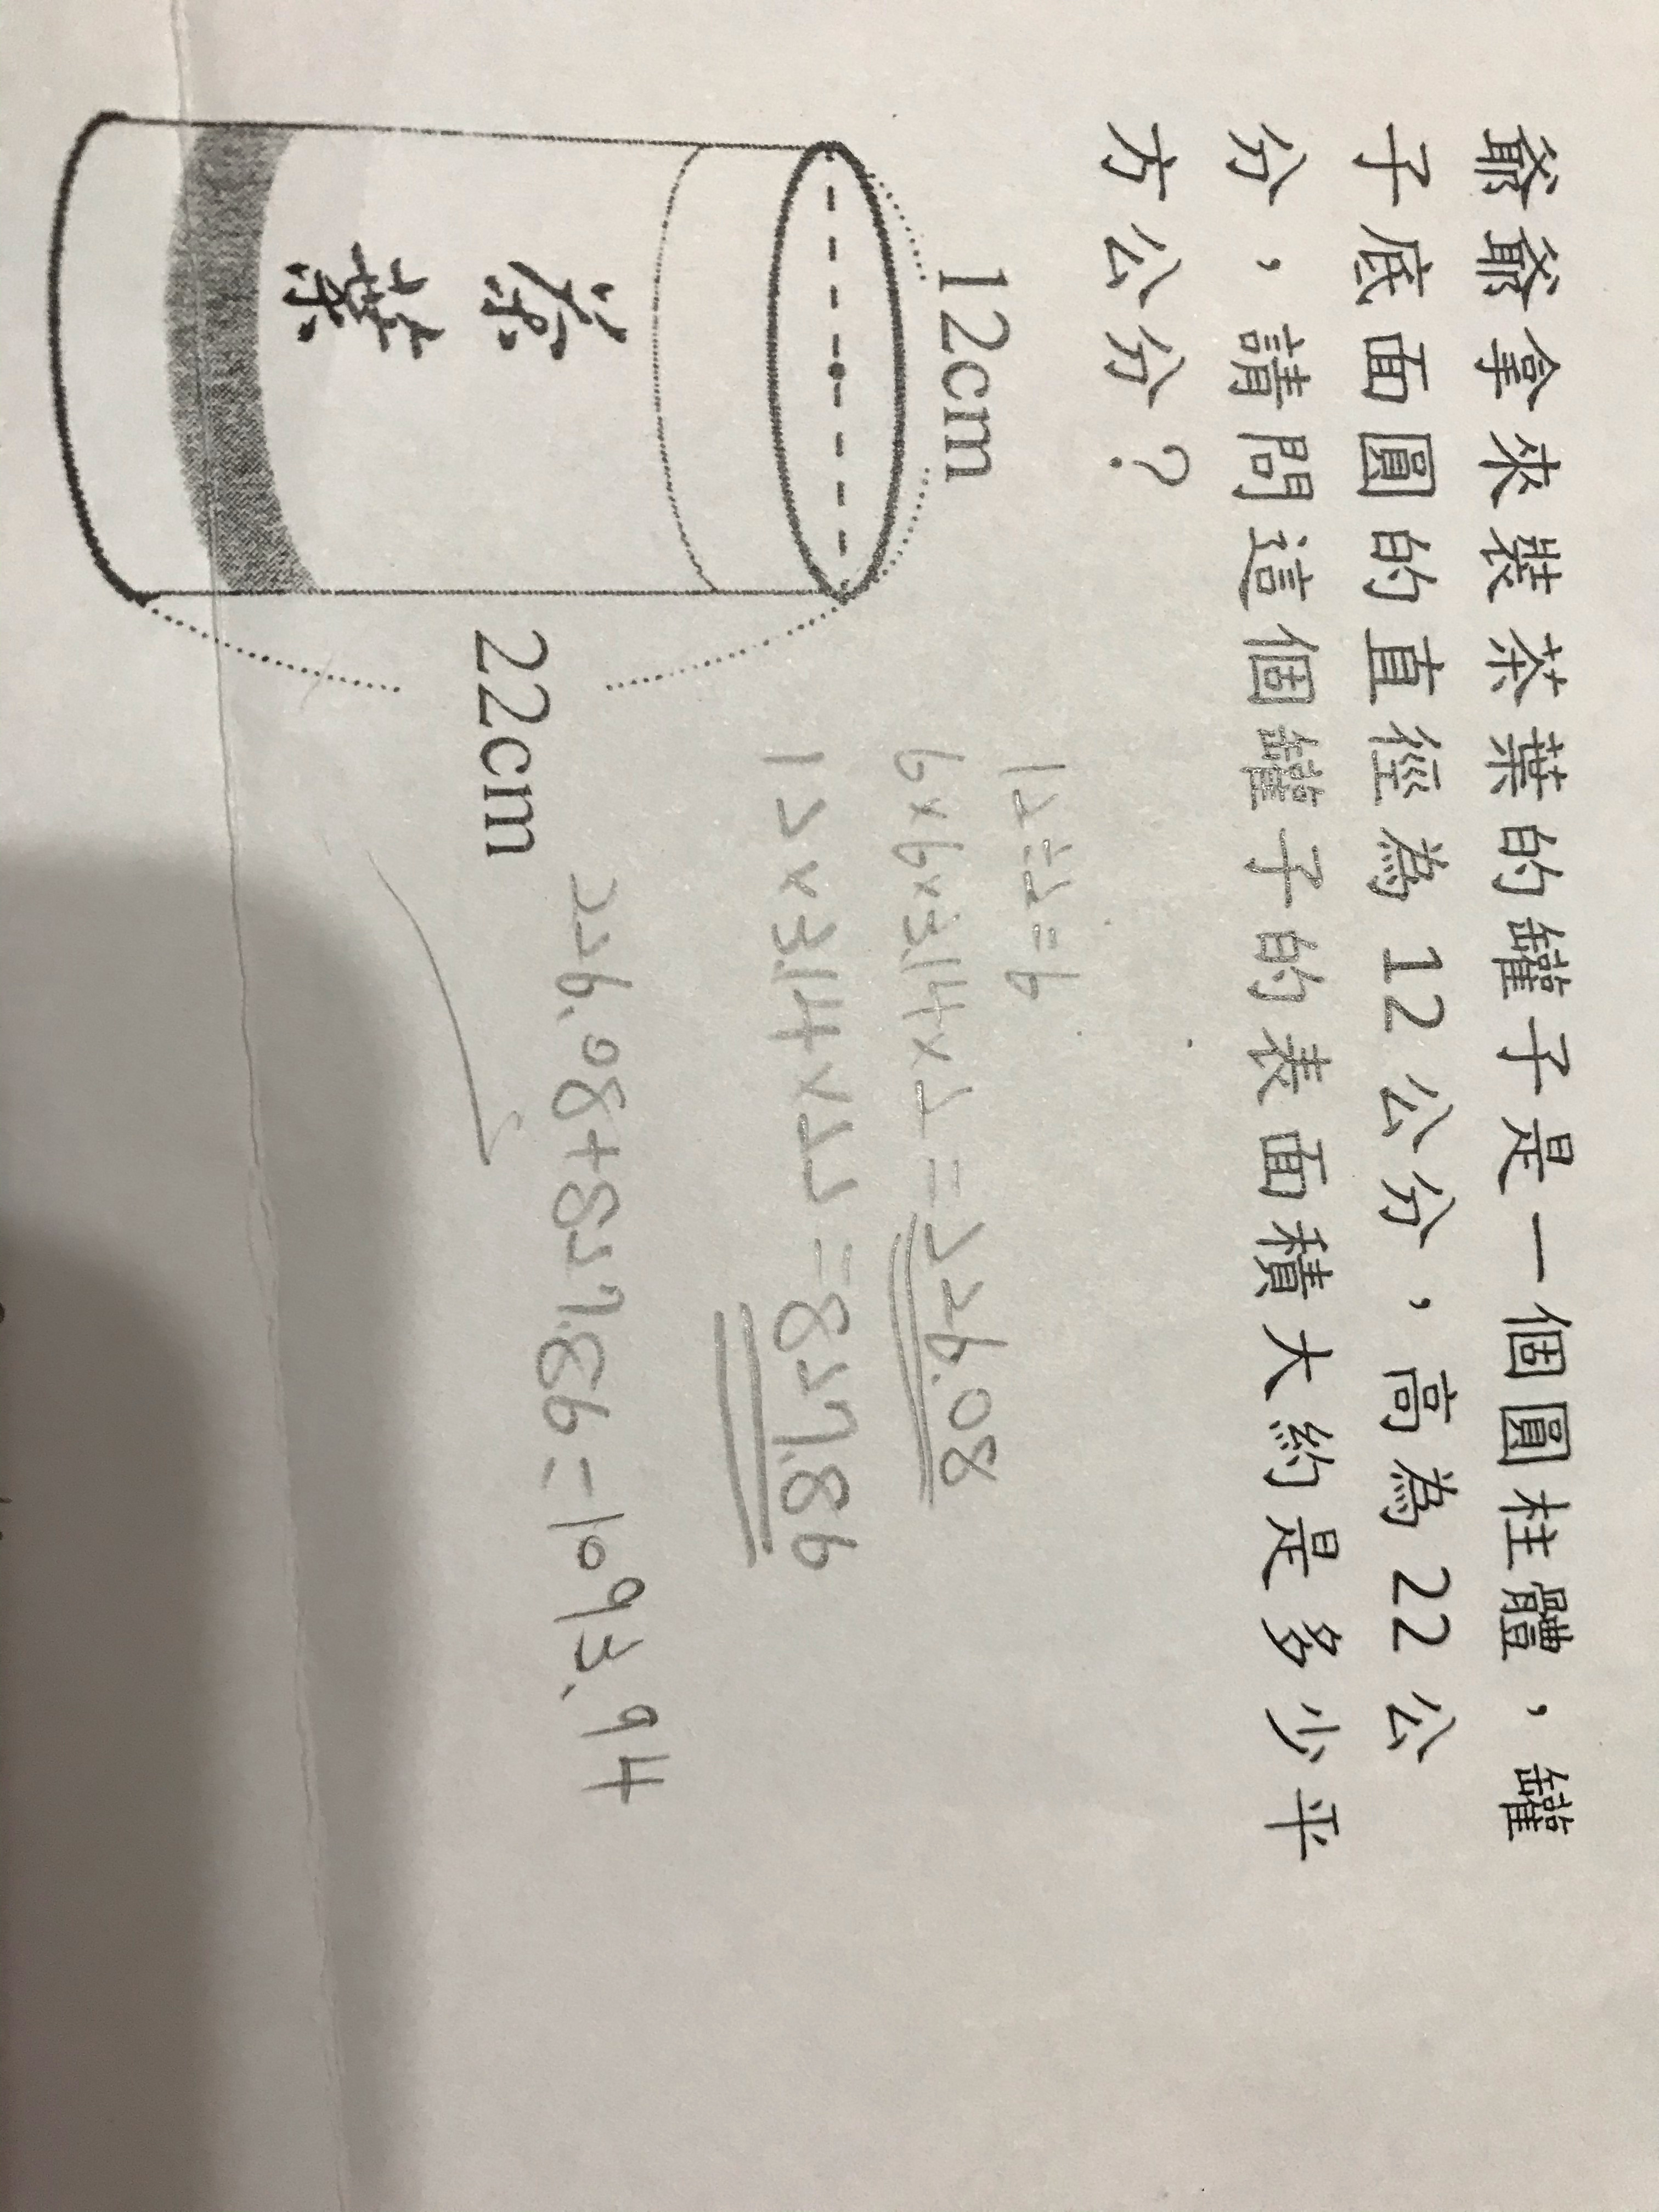 爺爺拿來裝茶葉的罐子是一個圓柱體，罐
子底面圓的直徑為 12 公分，高為 22 公
分，請問這個罐子的表面積大約是多少平
方公分？
12cm
茶
葉
22cm
12÷2=6
6×6×3.14×2=226.08
12×3.14×22=827.86
226.08+827.86=1093.94